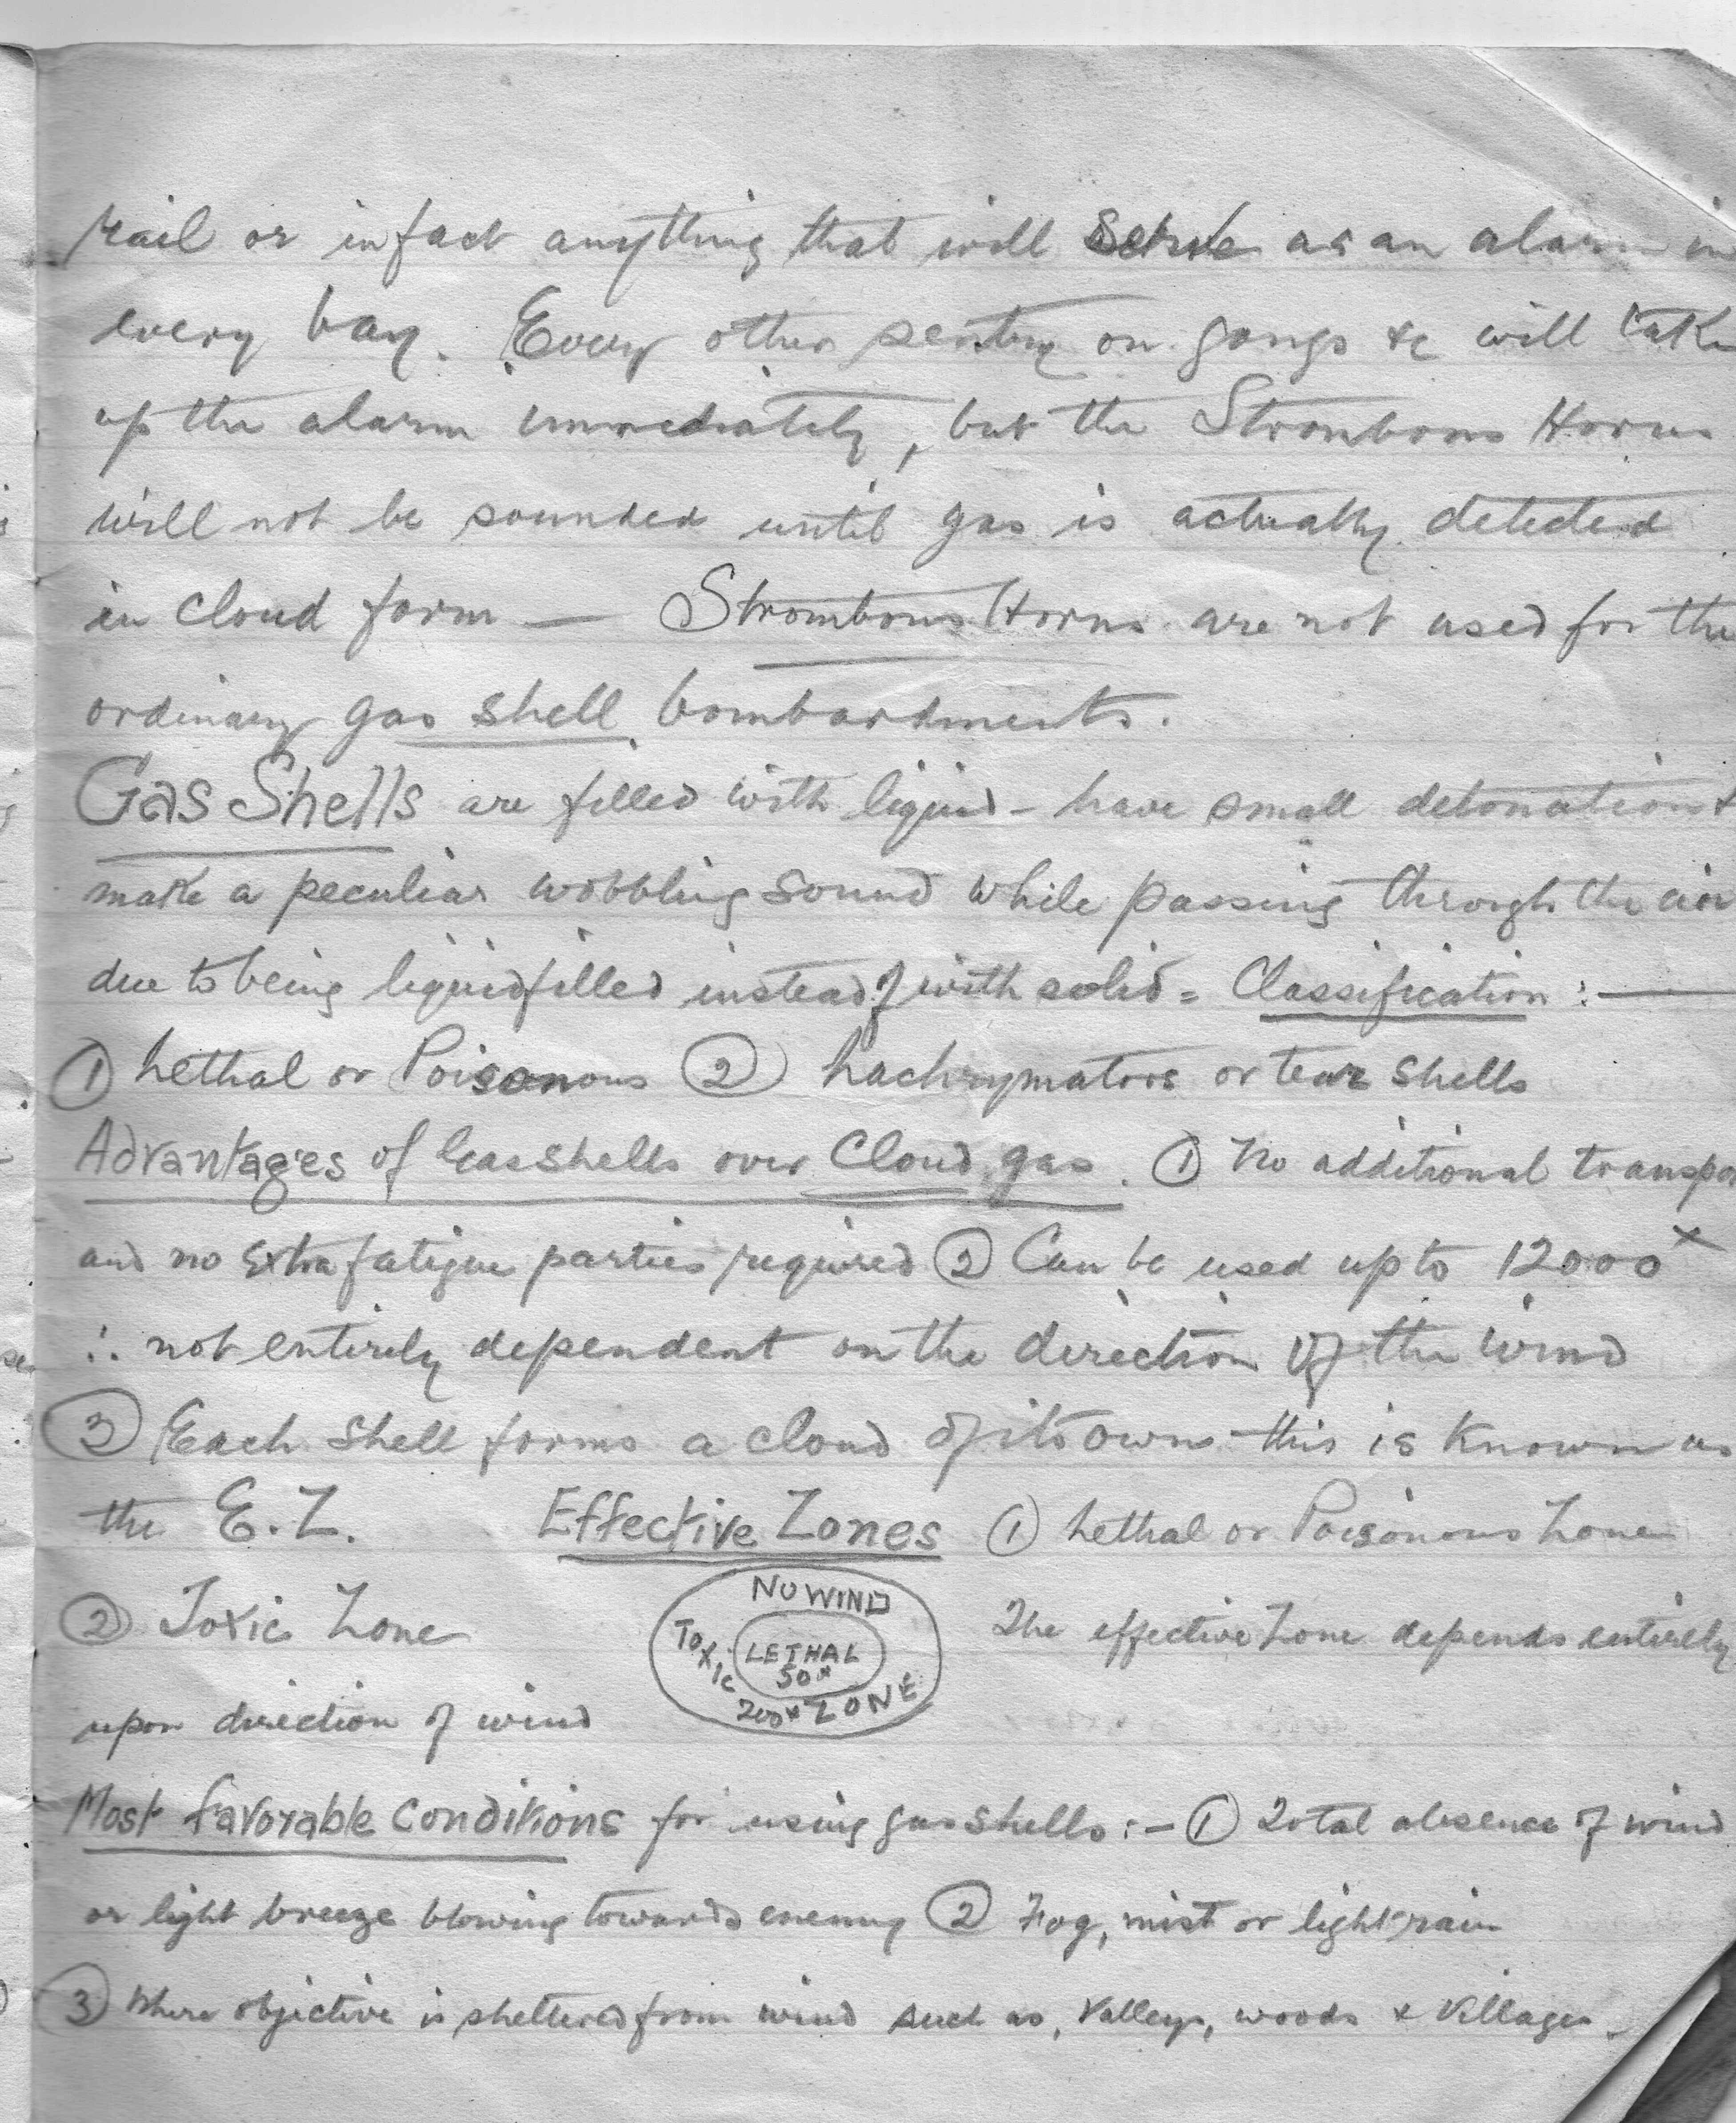 rail or in fact anything that will serve as an alarm in
every bay. Every other sentry on gongs &c will take
up the alarm immediately, but the Strombous Horns
will not be sounded until gas is actually detected
in cloud form — Strombous Horns are not used for the
ordinary gas shell bombardments.
Gas Shells are filled with liquid - have small detonation &
make a peculiar wobbling sound while passing through the air
due to being liquid filled instead of with solid = Classification :—
① Lethal or Poisonous ② Lachrymators or tear shells
Advantages of Gas shells over Cloud gas. ① No additional transpo
and no extra fatigue parties required ② Can be used up to 12000ˣ
∴ not entirely dependent on the direction of the wind
③ Each shell forms a cloud of its own - this is known as
the E.Z. Effective Zones ① Lethal or Poisonous Zone
② Toxic Zone
NO WIND
TOXIC
LETHAL
50ˣ
200ˣ ZONE
The effective Zone depends entirely
upon direction of wind
Most favorable conditions for using gas shells :- ① Total absence of wind
or light breeze blowing towards enemy ② Fog, mist or light rain
③ Where objective is sheltered from wind such as, Valleys, woods & Villages.